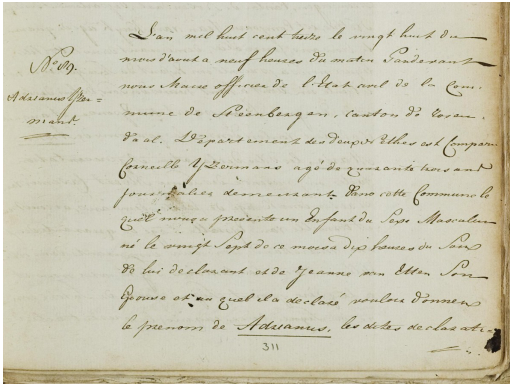 N.º 89.
Adrianus Yzer=
mans.
L'an mil huit cent treize le vingt huit du
mois d'aout a neuf heures du matin Pardevant
nous Maire officier de l'Etat civil de la Com-
mune de Steenbergen, canton de Rosen-
daal. Département des deux Nethes est Comparu
Corneille Yzermans agé de quarante trois ans
journalier demeurant dans cette Commune le
quel nous a présenté un Enfant du Sexe Masculin
né le vingt Sept de ce mois a dix heures du Soir
de lui declarant et de Jeanne van Etten Son
Epouse et au quel il a declaré vouloir donner
le prenom de Adrianus, les dites declaratio
311